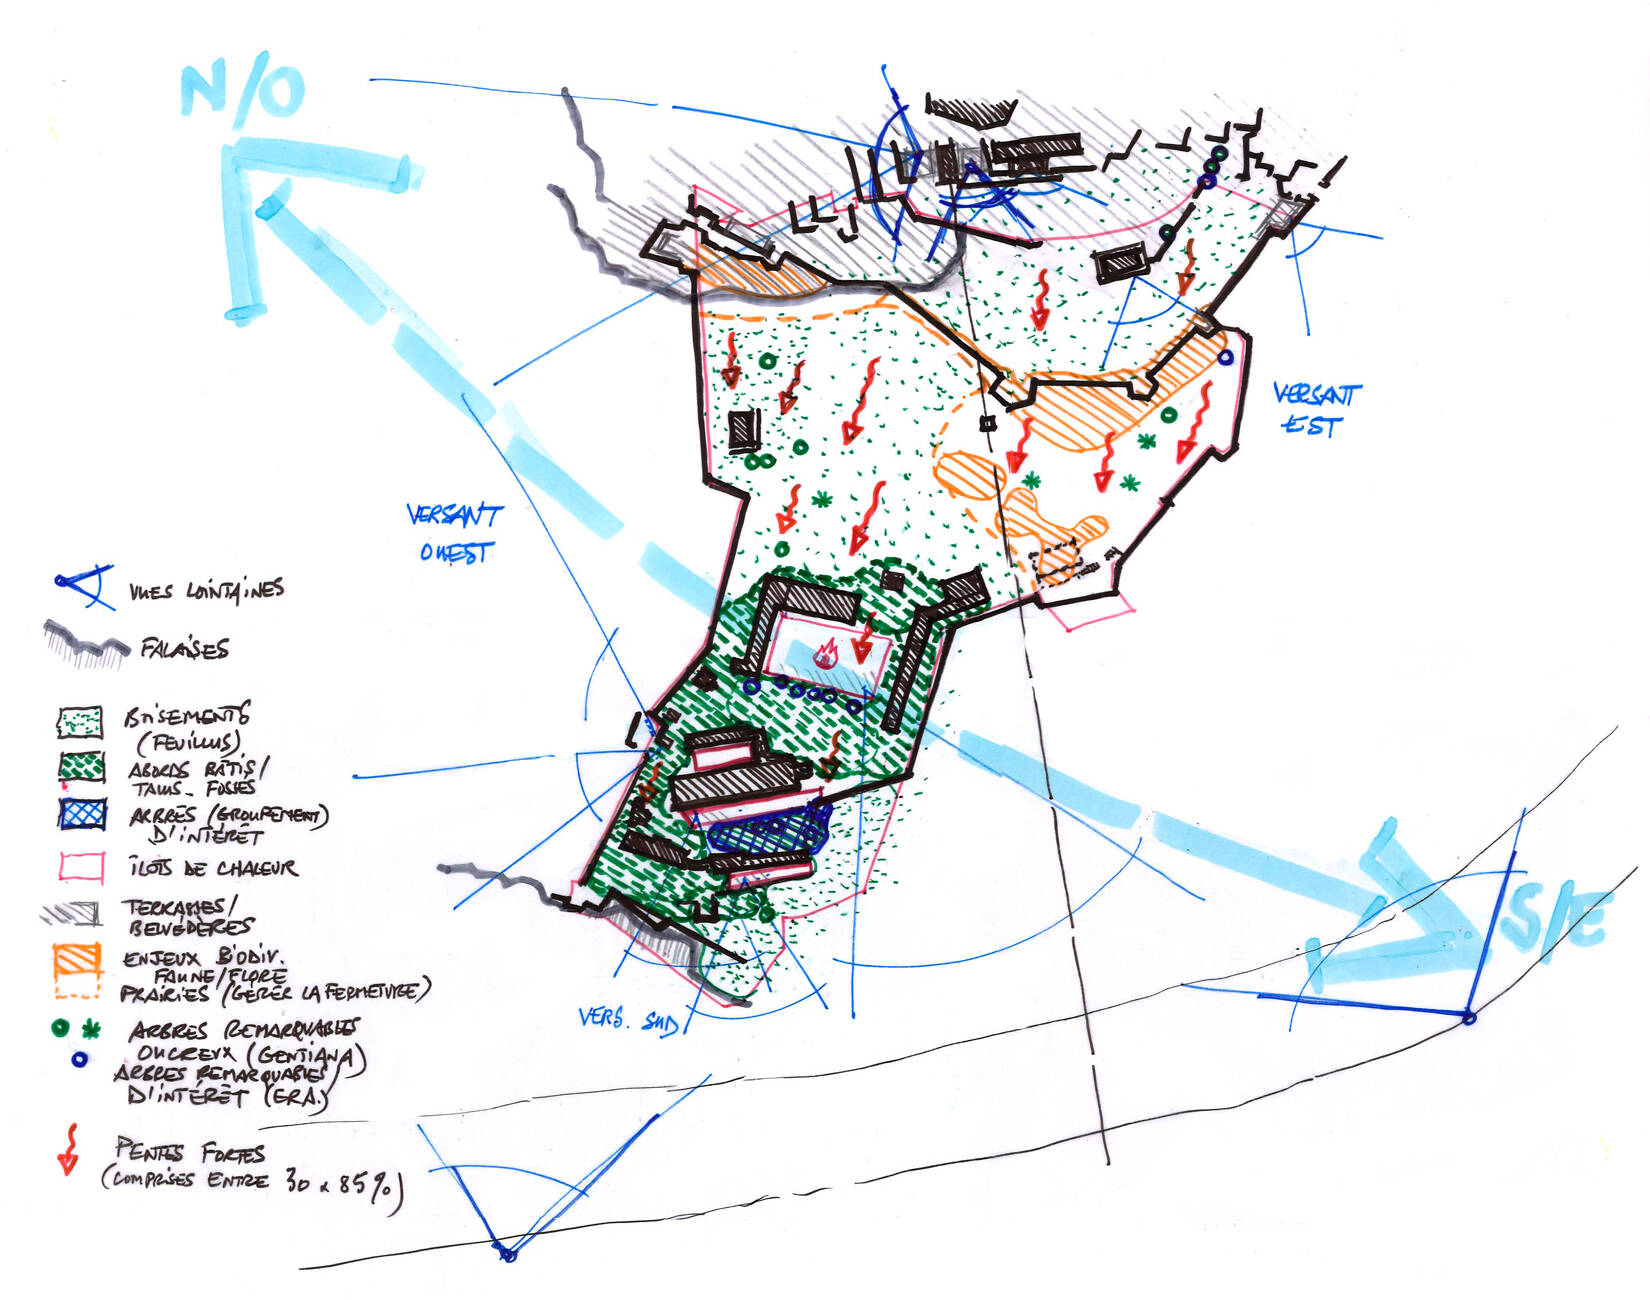 N/O
VERSANT
EST
VERSANT
OUEST
VUES LOINTAINES
FALAISES
BOISEMENTS
(FEUILLUS)
ABORDS BÂTIS/
TALUS - FOSSES
ARBRES (GROUPEMENT)
D'INTÉRÊT
ÎLOTS DE CHALEUR
TERRASSES/
BELVÉDÈRES
S/E
ENJEUX BIODIV.
FAUNE/FLORE
PRAIRIES (GÉRER LA FERMETURE)
VERS. SUD
ARBRES REMARQUABLES
OU CREUX (GENTIANA)
ARBRES REMARQUABLES
D'INTÉRÊT (ERA.)
PENTES FORTES
(COMPRISES ENTRE 30 x 85%)